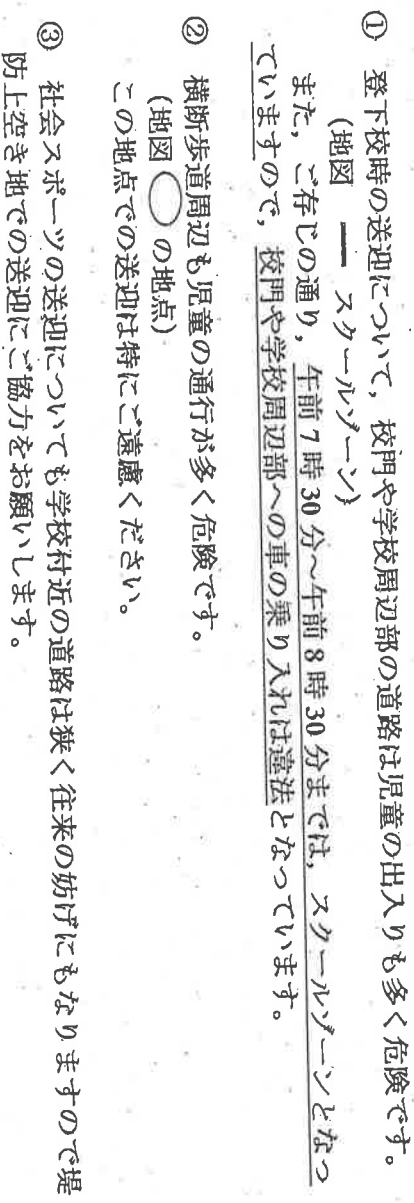 ① 登下校時の送迎について，校門や学校周辺部の道路は児童の出入りも多く危険です。
(地図 ━━ スクールゾーン)
また，ご存じの通り，午前7時30分～午前8時30分までは，スクールゾーンとなっ
ていますので，校門や学校周辺部への車の乗り入れは違法となっています。
② 横断歩道周辺も児童の通行が多く危険です。
(地図 ◯ の地点)
この地点での送迎は特にご遠慮ください。
③ 社会スポーツの送迎についても学校付近の道路は狭く往来の妨げにもなりますので堤
防上空き地での送迎にご協力をお願いします。